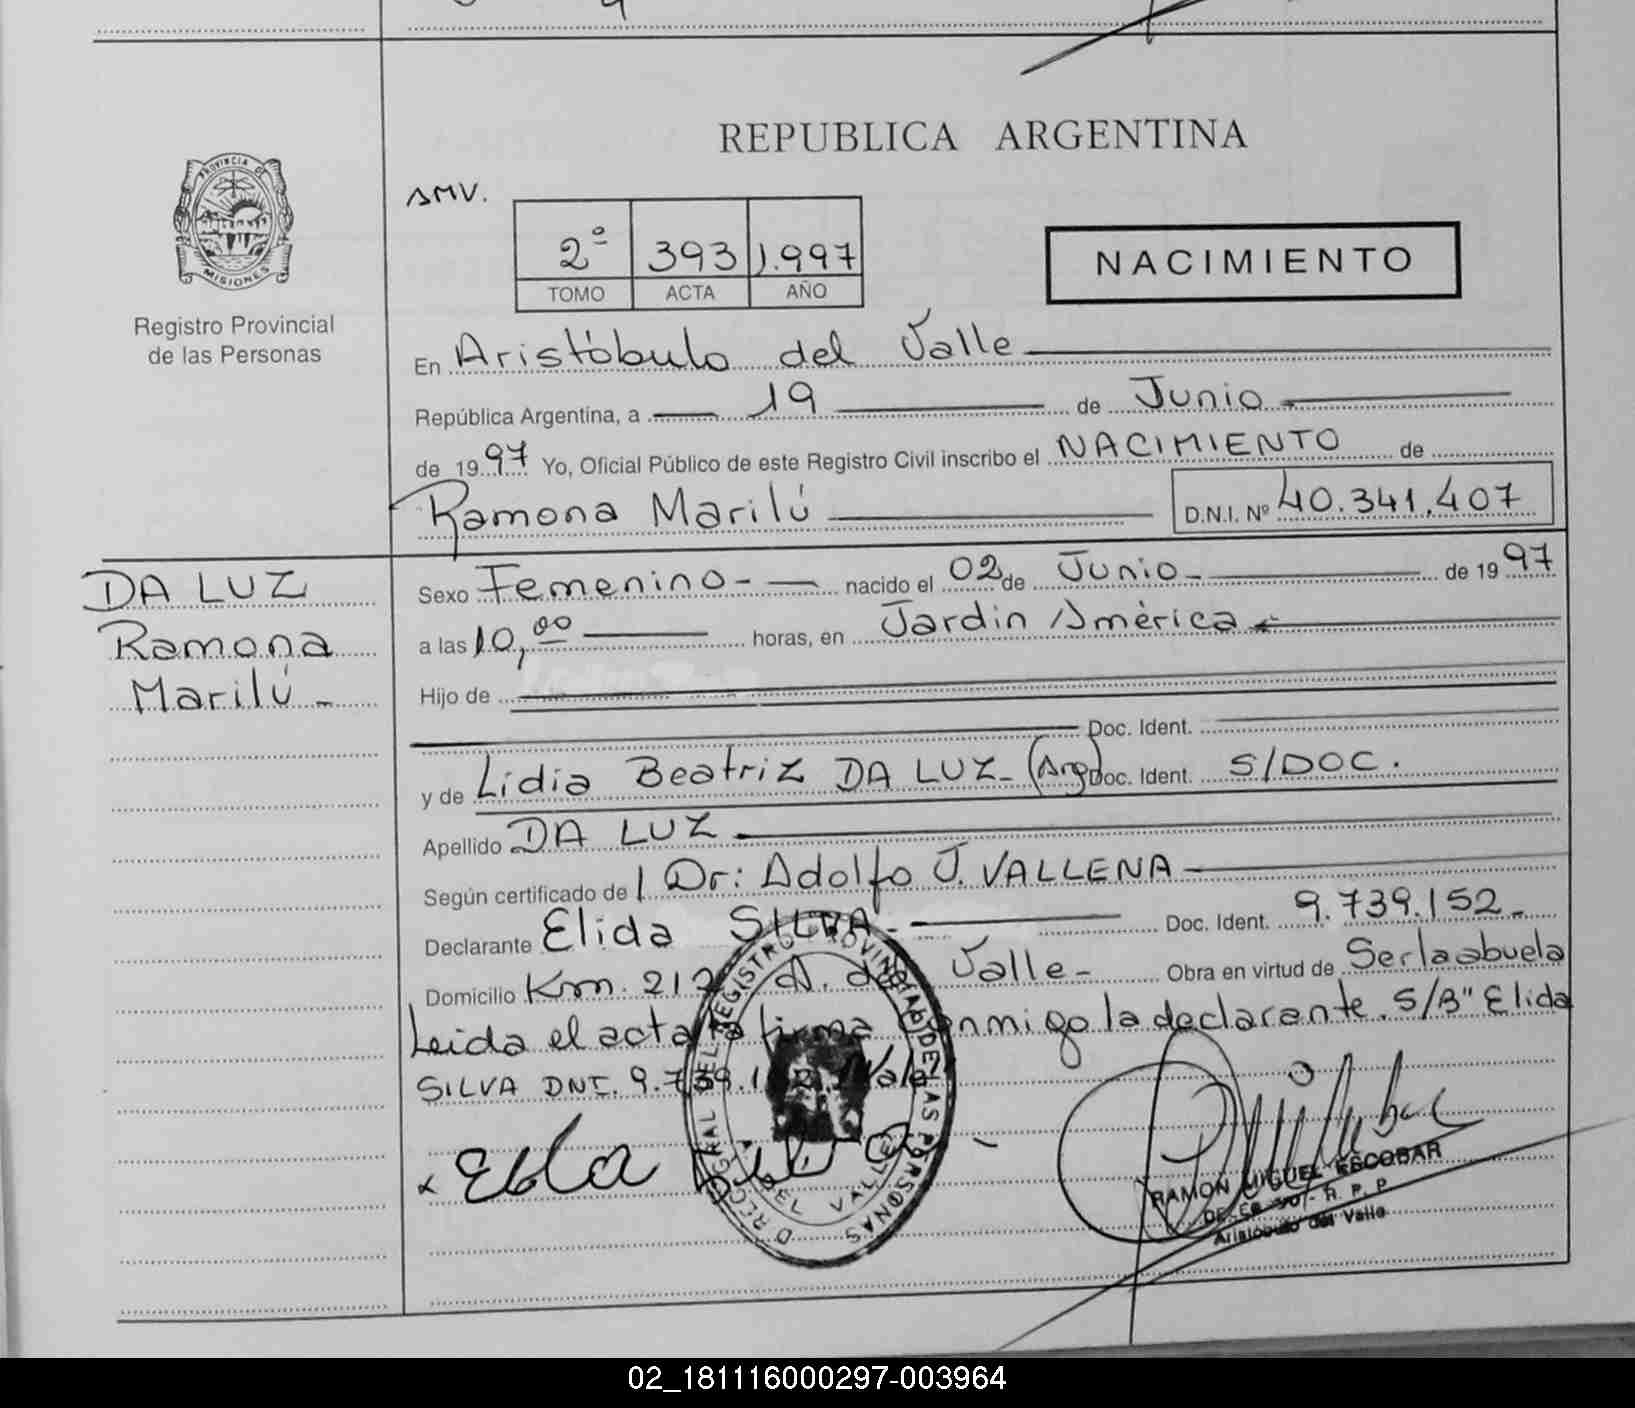 REPUBLICA ARGENTINA
PROVINCIA DE
MISIONES
Registro Provincial
de las Personas
AMV.
2º 393 1.997
TOMO ACTA AÑO
NACIMIENTO
En Aristóbulo del Valle
República Argentina, a 19 de Junio
de 1997 Yo, Oficial Público de este Registro Civil inscribo el NACIMIENTO de
Ramona Marilú D.N.I. Nº 40.341.407
DA LUZ
Ramona
Marilú -
Sexo Femenino - nacido el 02 de Junio - de 1997
a las 10,00 horas, en Jardin América
Hijo de
Doc. Ident.
y de Lidia Beatriz DA LUZ - (Arg) Doc. Ident. S/DOC.
Apellido DA LUZ
Según certificado de l Dr: Adolfo J. VALLENA
Declarante Elida SILVA - Doc. Ident. 9.739.152 -
Domicilio Km. 212 A. del Valle - Obra en virtud de Ser la abuela
Leida el acta la firma conmigo la declarante. S/B" Elida
SILVA DNI. 9.739.152. Vale
DIRECC. GRAL DEL REGISTRO PROVINCIAL DE LAS PERSONAS
A. DEL VALLE
RAMON MIGUEL ESCOBAR
R. P. P
Aristóbulo del Valle
02_181116000297-003964